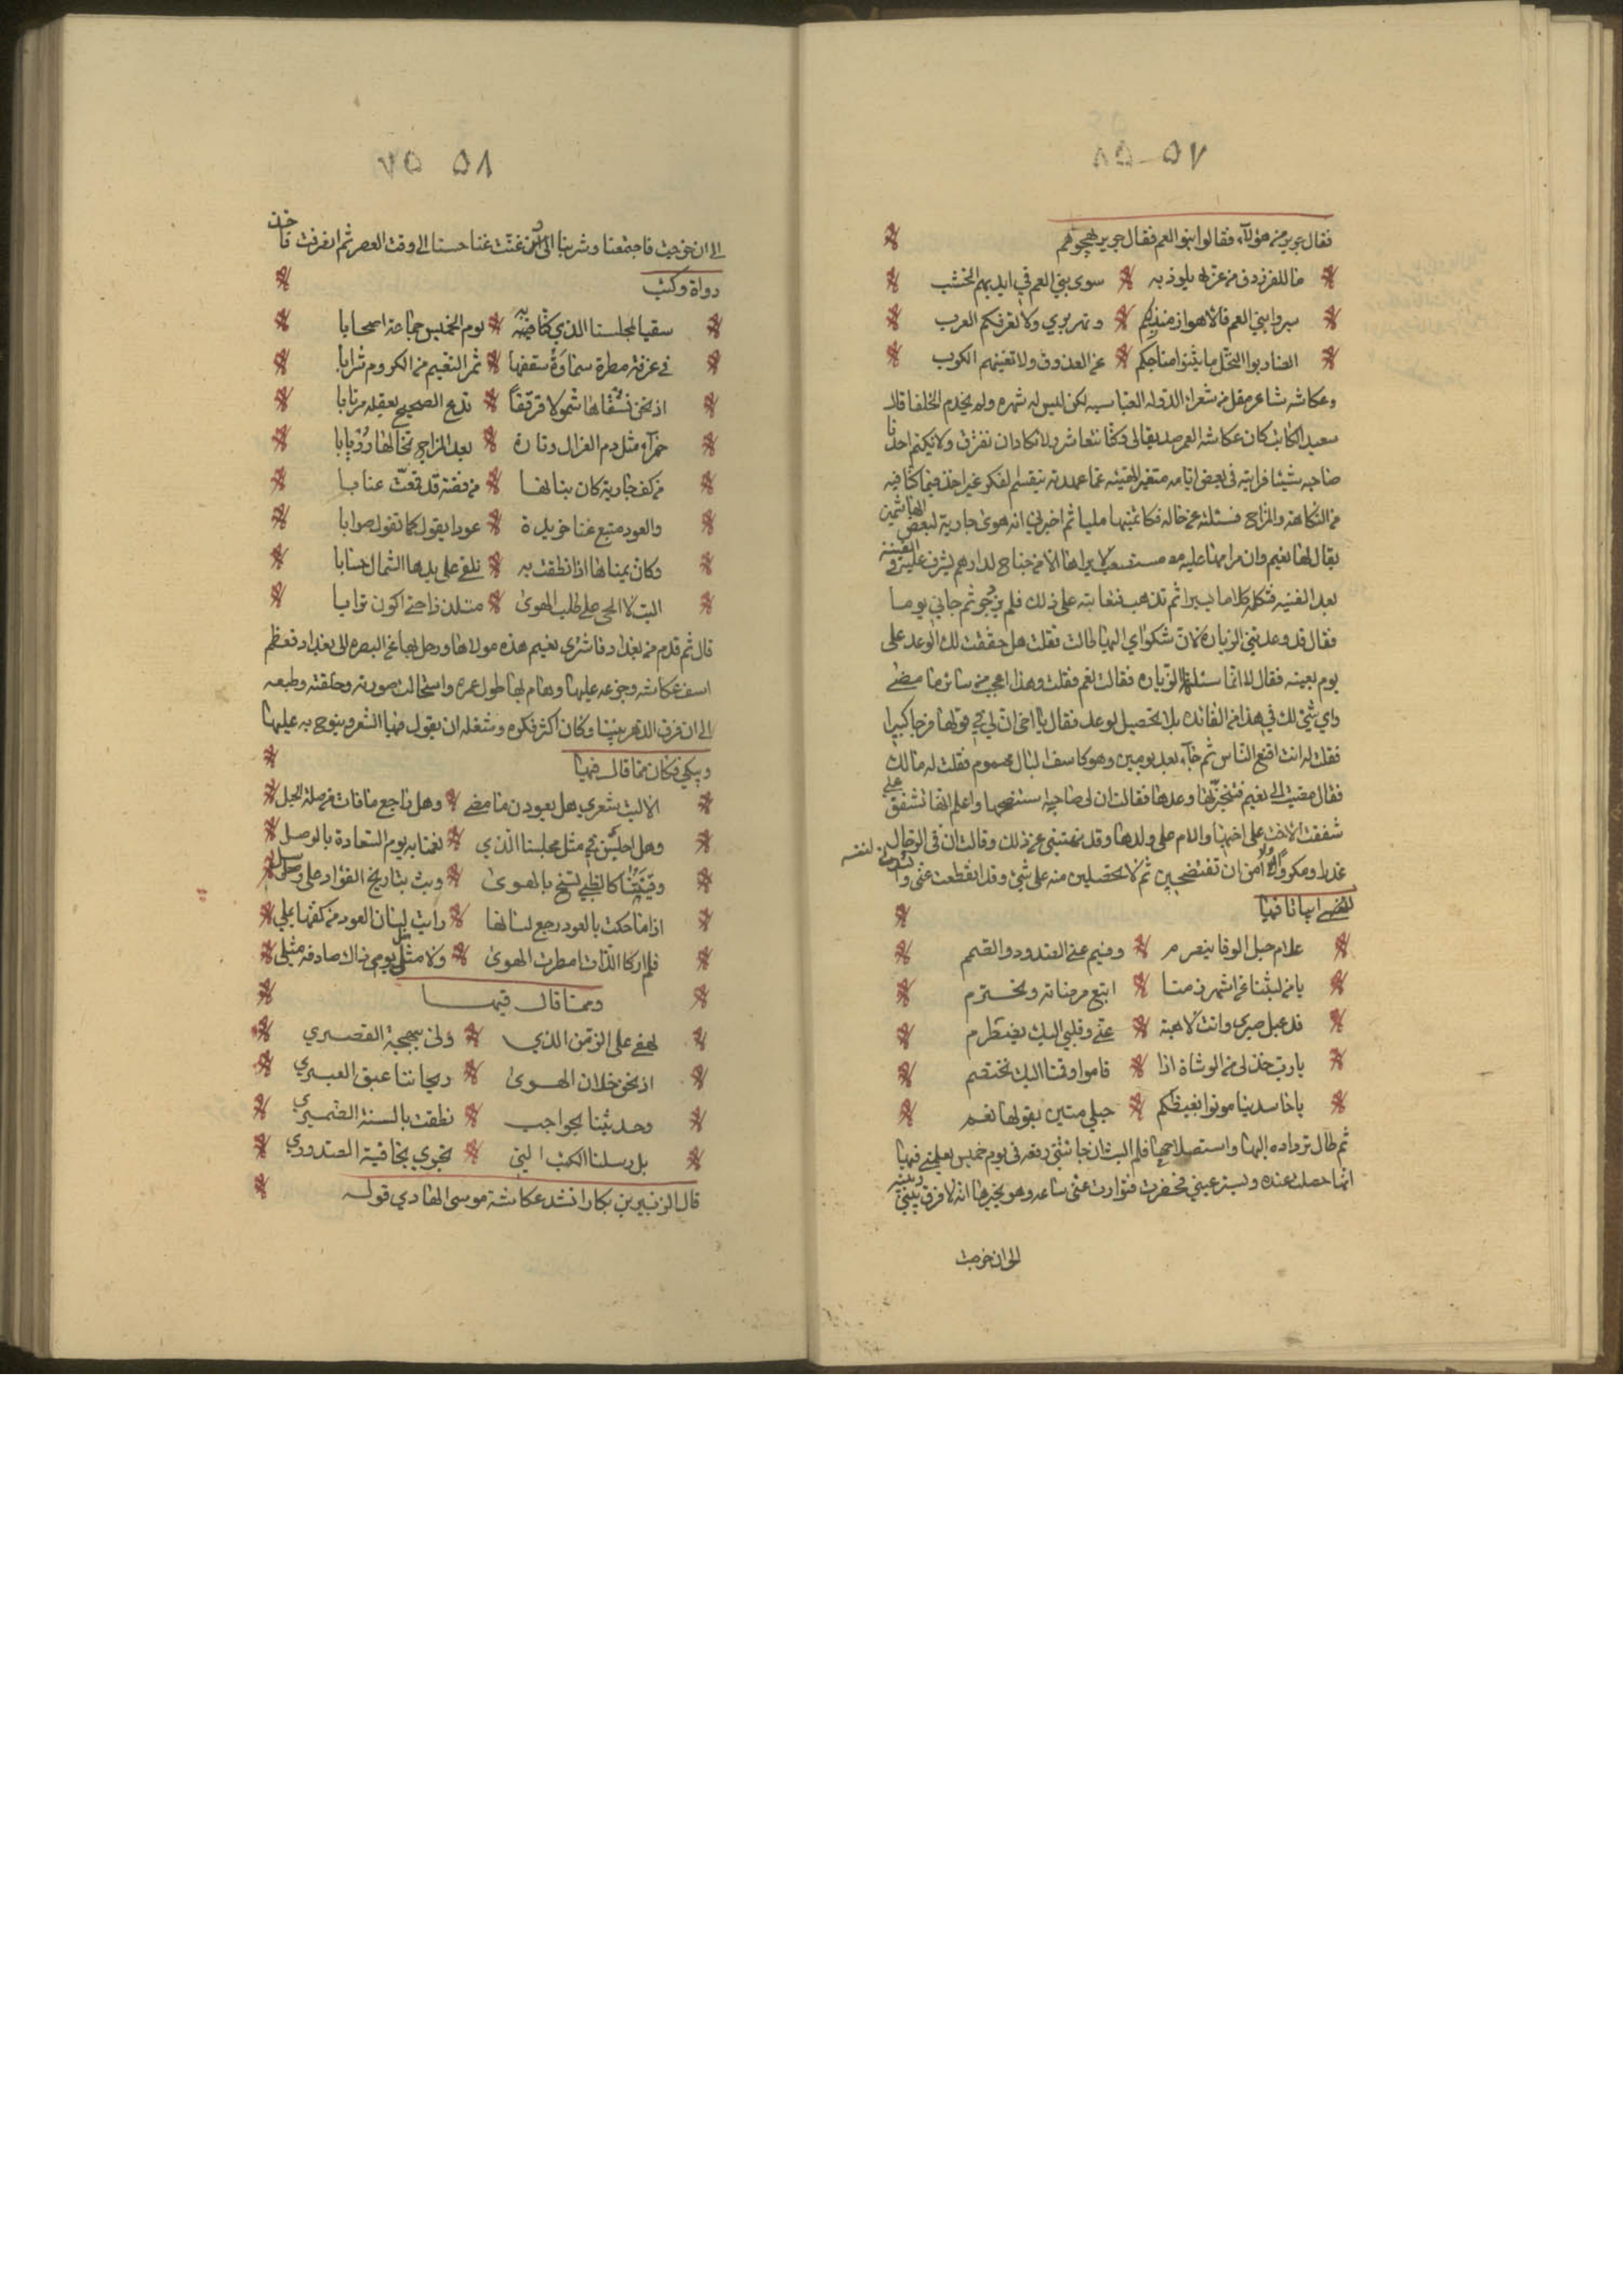 ٥٧ ٥٨
فقال جرير من هؤلاء فقالوا بنو العم فقال جرير يهجوهم
ما للفرزدق من عز له يلوذ به سوى بني العم في ايديهم الخشب
سيروا بني العم فالاهواز منزلكم ونهر تيري ولا تعرفكم العرب
الضاربوا النخل ما عن العذوق ولا الكرب
وعكاشه شاعر مقل من شعراء الدوله العباسيه لكن ليس له شهره ولم يخدم الخلفا قال
سعيد الكاتب كان عكاشه العمى صديقا لي وكنا نتعاشر ولا نكاد ان نفترق ولا يكتم احدنا
صاحبه شيئا فرايته في بعض ايامه متغير الهيئه عما عهدته مقسم الفكر غير اخذ فيما كنا فيه
من الفكاهه والمزاح فسئلته عن حاله فكاتمنيها مليا ثم اخبرني انه هوى جارية لبعض الهاشميين
يقال لها نعيم وان مرامها عليه مستصعب لا يراها الا من جناح لدارهم يشرف عليه الفينة
بعد الفينه فتكلمه كلاما يسيرا ثم تذهب فعاتبته على ذلك فلم يزدجر ثم جاني يوما
فقال قد وعدتني الزياره لان شكواي اليها طالت فقلت هل حققت لك الوعد على
يوم بعينه فقال لا انما سئلتها الزياره فقالت نعم فقلت وهذا اعجب من سائر ما مضى
واي شئ لك في هذا من الفائده بلا تحصيل وعد فقال يا اخي ان لي في قولها فرجا كبيرا
فقلت له انت اقنع الناس ثم جاء بعد يومين وهو كاسف البال مهموم فقلت له مالك
فقال مضيت الى نعيم فتنجزتها وعدها فقالت ان لي صاحبة استنصحها واعلم انها تشفق علي
شفقت الاخت على اختها والام على ولدها وقد نهتني عن ذلك وقالت ان في الرجال
غدرا ومكرا ولا آمن ان تفتضحين ثم لا تحصلين منه على شئ وقد انقطعت عني وانشدني لنفسه
ابياتا فيها
علام حبل الوفا منصرم وفيم عني الصدود والصمم
يا من اتبع مرضاته ونحترم
قد عيل صبري وانت لاهية عني وقلبي اليك يضطرم
يا رب خذ لي من الوشاة اذا قاموا وقمنا اليك نختصم
يا حاسدينا موتوا بغيظكم حبلي متين بقولها نعم
ثم طال ترداده اليها واستصلاحها فلم البث ان جائتني رقعه في يوم خميس يعلمني فيها
انها حصلت عنده ويستدعيني فحضرت فتوارت عني ساعه وهو يخبرها انه لا فرق بيني وبينه
الى ان خرجت
٥٨ ٥٧
الى ان خرجت فاجتمعنا وشربنا الى ان غنت غنا حسنا الى وقت العصر ثم انصرفت فاخذ
دواة وكتب
سقيا لمجلسنا الذي كنا به يوم الخميس جماعة اصحابا
في غرفة مطرت سماوة سقفها ثمر النعيم من الكروم شرابا
اذ نحن نسقاها شمولا قرقفا تدع الصحيح بعقله مرتابا
حمراء مثل دم الغزال وتارة بعد المزاج تخالها زريابا
من كف جارية كان بنانها من فضة قد قمعت عنابا
والعود متبع غنا خريدة عودا يقول كما تقول صوابا
وكان يمناها اذا نطقت به تلقي على يدها الشمال حسابا
اليت لا الحي على طلب الهوى متلذذا حتى اكون ترابا
قال ثم قدم من بغداد فاشترى نعيم هذه من مولاها ورحل بها عن البصره الى بغداد فعظم
اسف عكاشه وجزعه عليها وهام بها طول عمره واستحالت صورته وخلقته وطبعه
الى ان فرق الدهر بيننا وكان اكثر فكره وشغله ان يقول فيها الشعر وينوح به عليها
ويبكي فكان مما قال فيها
الا ليت شعري هل يعودن ما مضى وهل راجع ما فات من صلة الحبل
وهل اجلسن في مثل مجلسنا الذي نعمنا به يوم السعادة بالوصل
كالظبي تسنح بالهوى وبث تباريح الفؤاد على رسل
اذا ما حكت بالعود رجع لسانها رايت لسان العود من كفها يملي
فلم ار كاللذات امطرت الهوى ولا مثل يومي ذاك صادفه مثلي
ومما قال فيها
لهفي على الزمن الذي ولى ببهجته القصيري
اذ نحن خلان الهوى ريحاننا عبق العبيري
وحديثنا بحواجب نطقت بالسنة الضميري
بل رسلنا الكتب التي تجري بخافية الصدوري
قال الزبير بن بكار انشد عكاشة موسى الهادي قوله